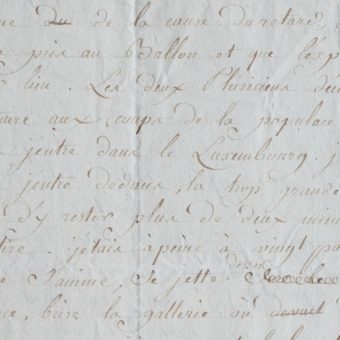 de la cause du retard,
pris au Ballon et que l'exp
lieu. Les deux Phisiciens
aux corps de la populace
j'entre dans le Luxembourg. j
jentre dedans, la trop grande
d'y rester plus de deux minu
. jetais a peine à vingt pas
Se jette dessus
ce, brise la gallerie où devait